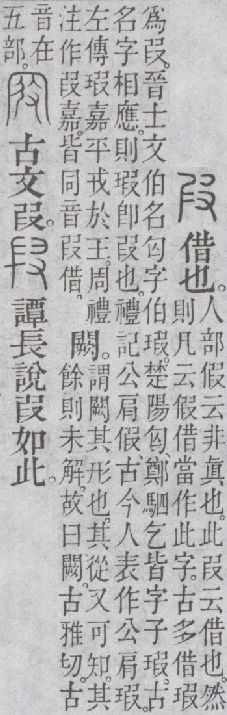 借也。
人部假云非眞也。此叚云借也。然
則凡云假借當作此字。古多借瑕
爲叚。晉士文伯名匄字伯瑕。楚陽匄、鄭駟乞皆字子瑕。古
名字相應。則瑕卽叚也。禮記公肩假古今人表作公肩瑕。
左傳瑕嘉平戎於王。周禮
注作叚嘉。皆同音叚借。
闕。
謂闕其形也。其從又可知。其
餘則未解。故曰闕。古雅切。古
音在
五部。
古文叚。
譚長說叚如此。